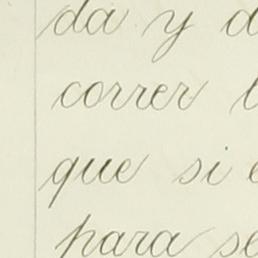 da y d
correr l
que si e
para se